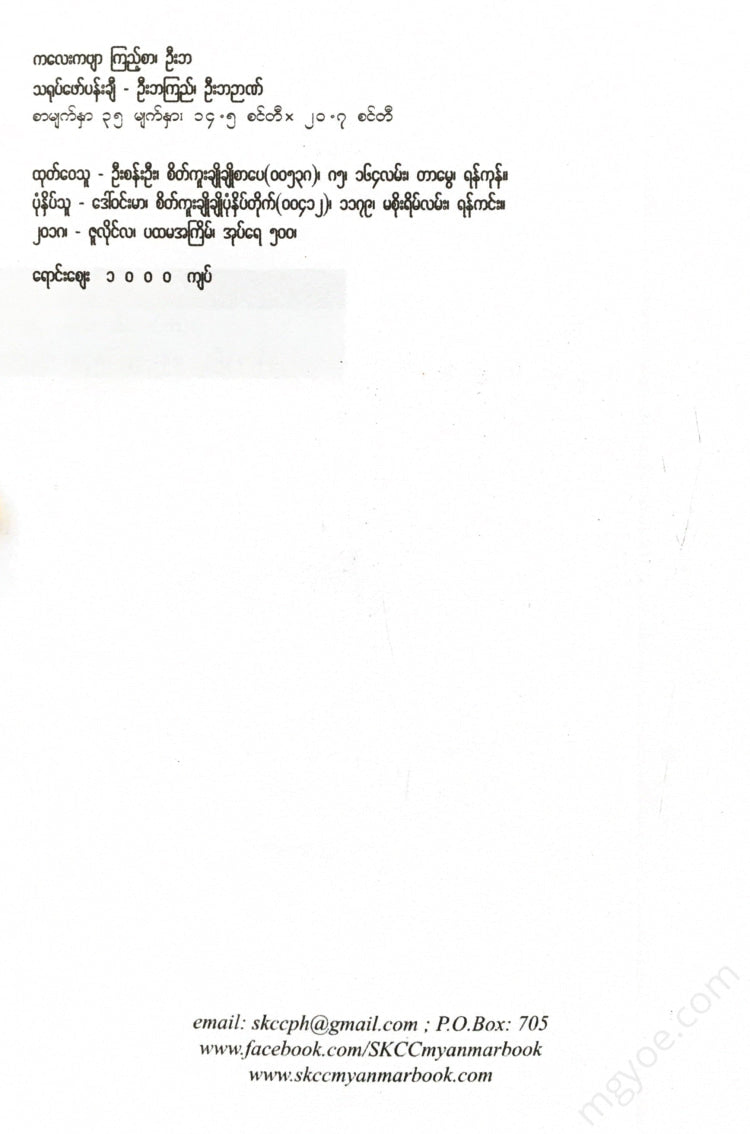 ကလေးကဗျာ ကြည့်စာ၊ ဦးဘ
သရုပ်ဖော်ပန်းချီ - ဦးဘကြည်၊ ဦးဘဉာဏ်
စာမျက်နှာ ၃၅ မျက်နှာ၊ ၁၄.၅ စင်တီ× ၂၀.၇ စင်တီ
ထုတ်ဝေသူ - ဦးစန်းဦး၊ စိတ်ကူးချိုချိုစာပေ(၀၀၅၃၈)၊ ၈၅၊ ၁၆၄လမ်း၊ တာမွေ၊ ရန်ကုန်။
ပုံနှိပ်သူ - ဒေါ်ဝင်းမာ၊ စိတ်ကူးချိုချိုပုံနှိပ်တိုက်(၀၀၄၁၂)၊ ၁၁၇၉၊ မစိုးရိမ်လမ်း၊ ရန်ကင်း။
၂၀၁၈၊ - ဇူလိုင်လ၊ ပထမအကြိမ်၊ အုပ်ရေ ၅၀၀၊
ရောင်းဈေး ၁ ၀ ၀ ၀ ကျပ်
email: skccph@gmail.com ; P.O.Box: 705
www.facebook.com/SKCCmyanmarbook
www.skccmyanmarbook.com
mgyoe.com